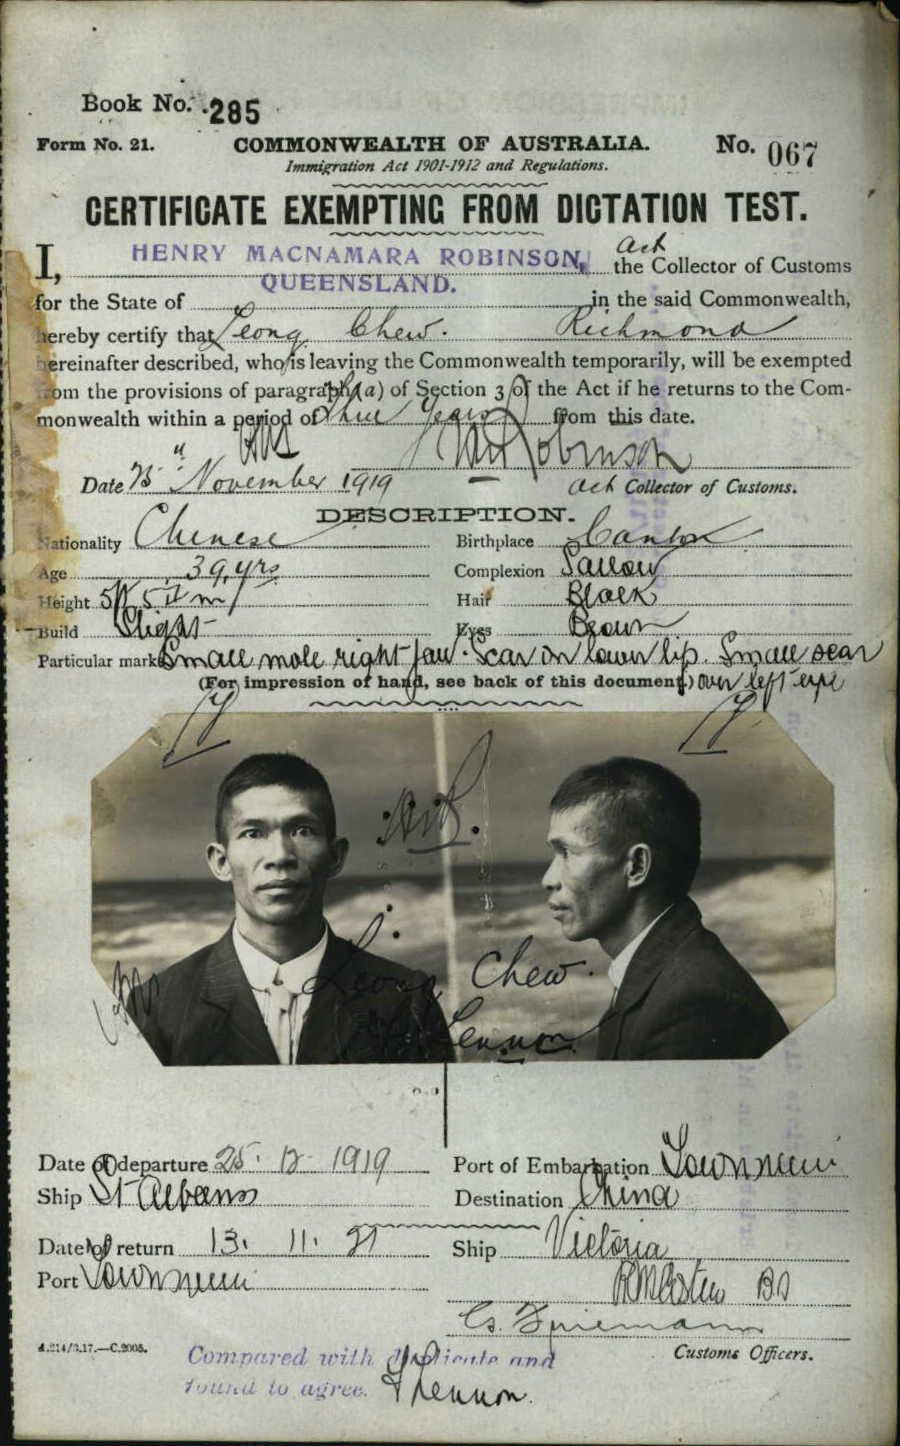 Book No. 285
Form No. 21. COMMONWEALTH OF AUSTRALIA. No. 067
Immigration Act 1901-1912 and Regulations.
CERTIFICATE EXEMPTING FROM DICTATION TEST.
I, HENRY MACNAMARA ROBINSON, act the Collector of Customs
for the State of QUEENSLAND. in the said Commonwealth,
hereby certify that Leong Chew. Richmond
hereinafter described, who is leaving the Commonwealth temporarily, will be exempted
from the provisions of paragraph (a) of Section 3 of the Act if he returns to the Com-
monwealth within a period of three years from this date.
Robinson
Date November 1919 act Collector of Customs.
DESCRIPTION.
Nationality Chinese Birthplace Canton
Age 39 yrs Complexion Sallow
Height 5ft Hair Black
Build Slight Eyes Brown
Particular marks Small mole right jaw. Scar on lower lip. Small scar
(For impression of hand, see back of this document.) over left eye
Leong Chew.
Lennon
Date of departure 25. 12. 1919 Port of Embarkation Townsville
Ship St Albans Destination China
Date of return 13. 11. 21 Ship Victoria
Port Townsville
A.214/3.17.—C.2005. Customs Officers.
Compared with duplicate and
found to agree. Lennon.